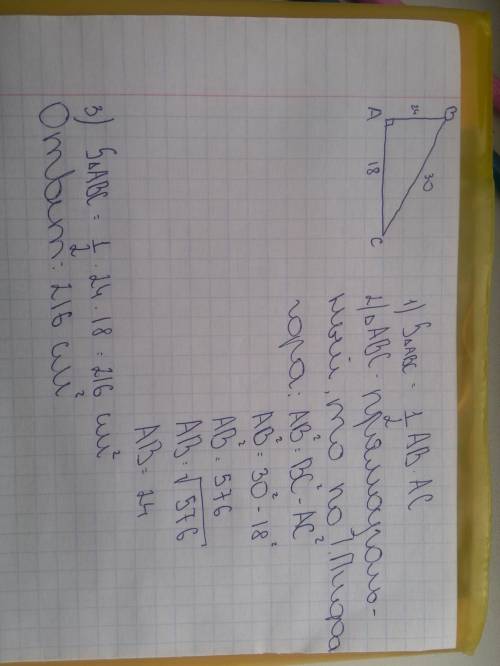 B
24
30
A
18
C
1) S△ABC = 1/2 AB · AC
2) △ABC - прямоуголь-
ный, то по т. Пифа
гора: AB² = BC² - AC²
AB² = 30² - 18²
AB² = 576
AB = √576
AB = 24
3) S△ABC = 1/2 · 24 · 18 = 216 см²
Ответ: 216 см²